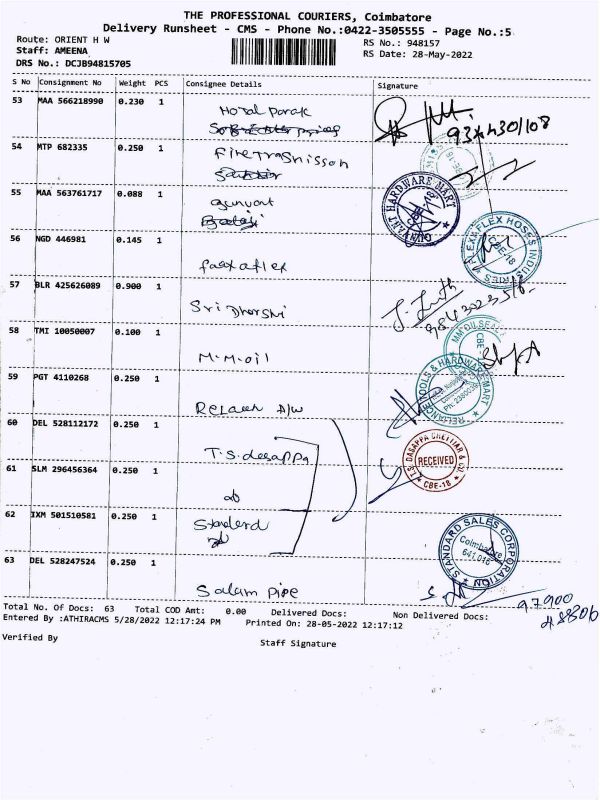 THE PROFESSIONAL COURIERS, Coimbatore
Delivery Runsheet - CMS - Phone No.:0422-3505555 - Page No.:5
Route: ORIENT H W
RS No.: 948157
Staff: AMEENA
RS Date: 28-May-2022
DRS No.: DCJB94815705
S No Consignment No Weight PCS Consignee Details Signature
53 MAA 566218990 0.230 1
Hotal Parak
54 MTP 682335 0.250 1
55 MAA 563761717 0.088 1
gunvant
GUNVANT HARDWARE MART
CBE-18
56 NGD 446981 0.145 1
FLEX HOSES INDUSTRIES
CBE-18
57 BLR 425626089 0.900 1
Sri Dharshi
58 TMI 10050007 0.100 1
M.M.oil
MM OILSEAL
CBE
59 PGT 4110268 0.250 1
H/W
RELIANCE TOOLS & HARDWARE MART
60 DEL 528112172 0.250 1
T.S.dasappa
T.S. DASAPPA CHETTIAR & CO.
RECEIVED
CBE-18
61 SLM 296456364 0.250 1
62 IXM 501510581 0.250 1
Standerd
STANDARD SALES CORPORATION
Coimbatore
641 018
63 DEL 528247524 0.250 1
Salam Pipe
97900
48806
Total No. Of Docs: 63 Total COD Amt: 0.00 Delivered Docs: Non Delivered Docs:
Entered By :ATHIRACMS 5/28/2022 12:17:24 PM Printed On: 28-05-2022 12:17:12
Verified By
Staff Signature